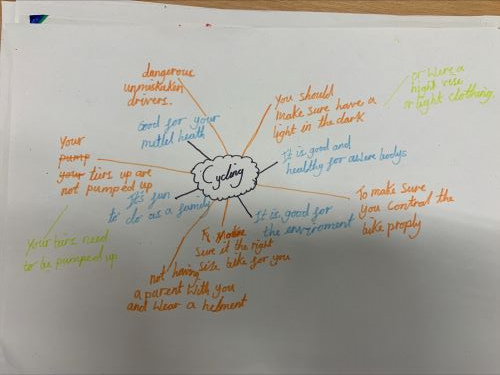 dangerous
unmistaken
drivers.
Good for your
metlel heath
Your
pump
your tiers up are
not pumped up
It's fun
to do as a family
Your tiers need
to be pumped up
Cycling
You should
make sure have a
light in the dark
or were a
hight
or light clothing.
It is good and
healthy for awere bodys
It is good for
the enviroment
To make sure
you control the
bike proply
sure it the right
size bike for you
not having
a parent with you
and wear a helment